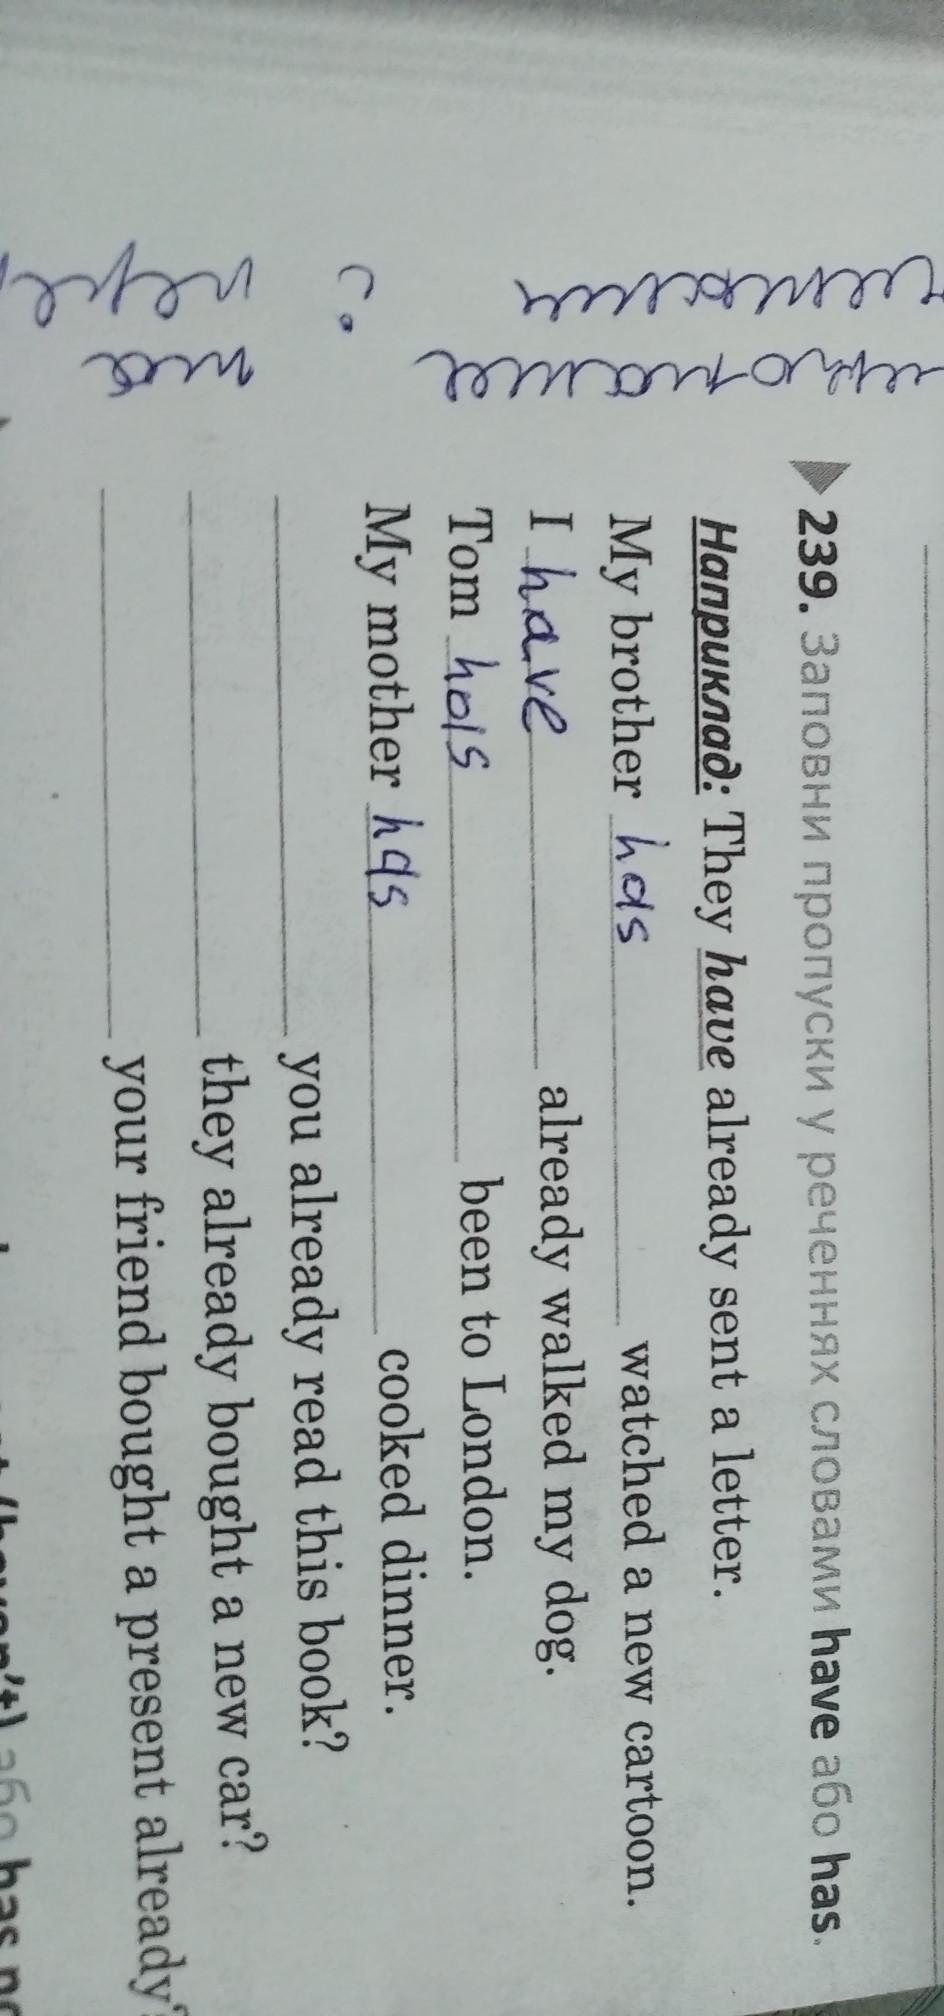 239. Заповни пропуски у реченнях словами have або has.
Наприклад: They have already sent a letter.
My brother has watched a new cartoon.
I have already walked my dog.
Tom has been to London.
My mother has cooked dinner.
you already read this book?
they already bought a new car?
your friend bought a present already?